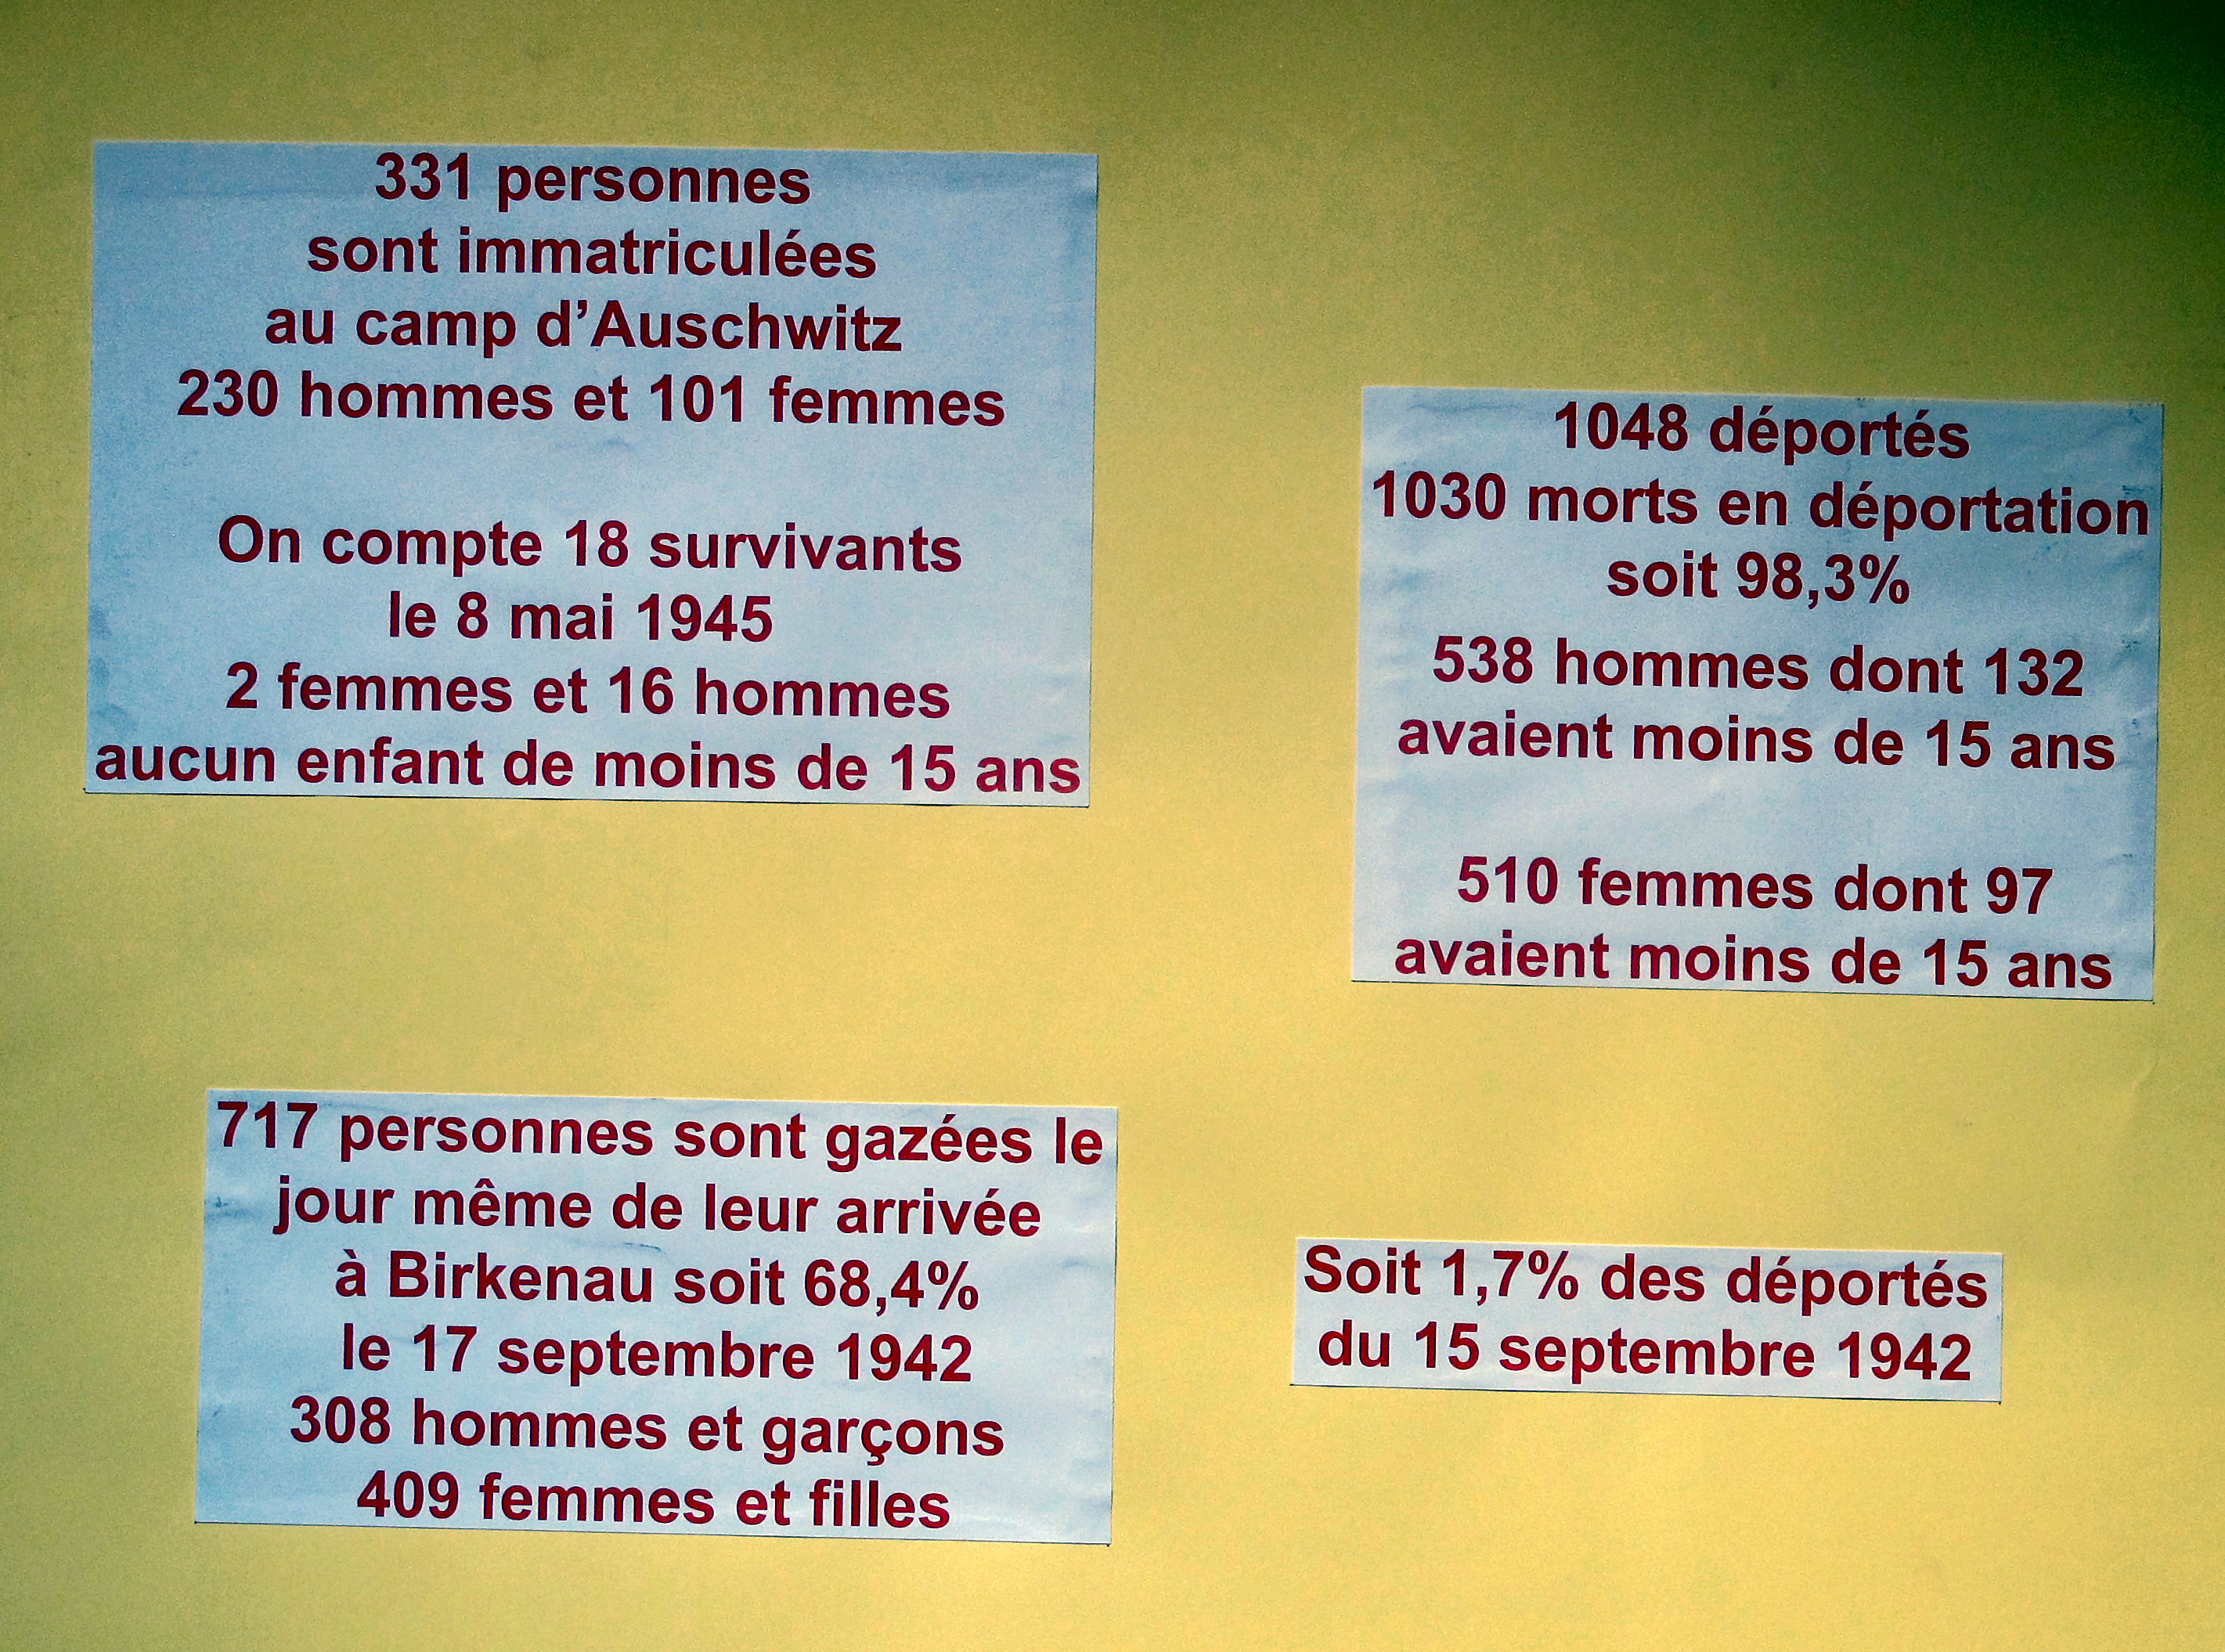 331 personnes
sont immatriculées
au camp d’Auschwitz
230 hommes et 101 femmes
On compte 18 survivants
le 8 mai 1945
2 femmes et 16 hommes
aucun enfant de moins de 15 ans
1048 déportés
1030 morts en déportation
soit 98,3%
538 hommes dont 132
avaient moins de 15 ans
510 femmes dont 97
avaient moins de 15 ans
717 personnes sont gazées le
jour même de leur arrivée
à Birkenau soit 68,4%
le 17 septembre 1942
308 hommes et garçons
409 femmes et filles
Soit 1,7% des déportés
du 15 septembre 1942